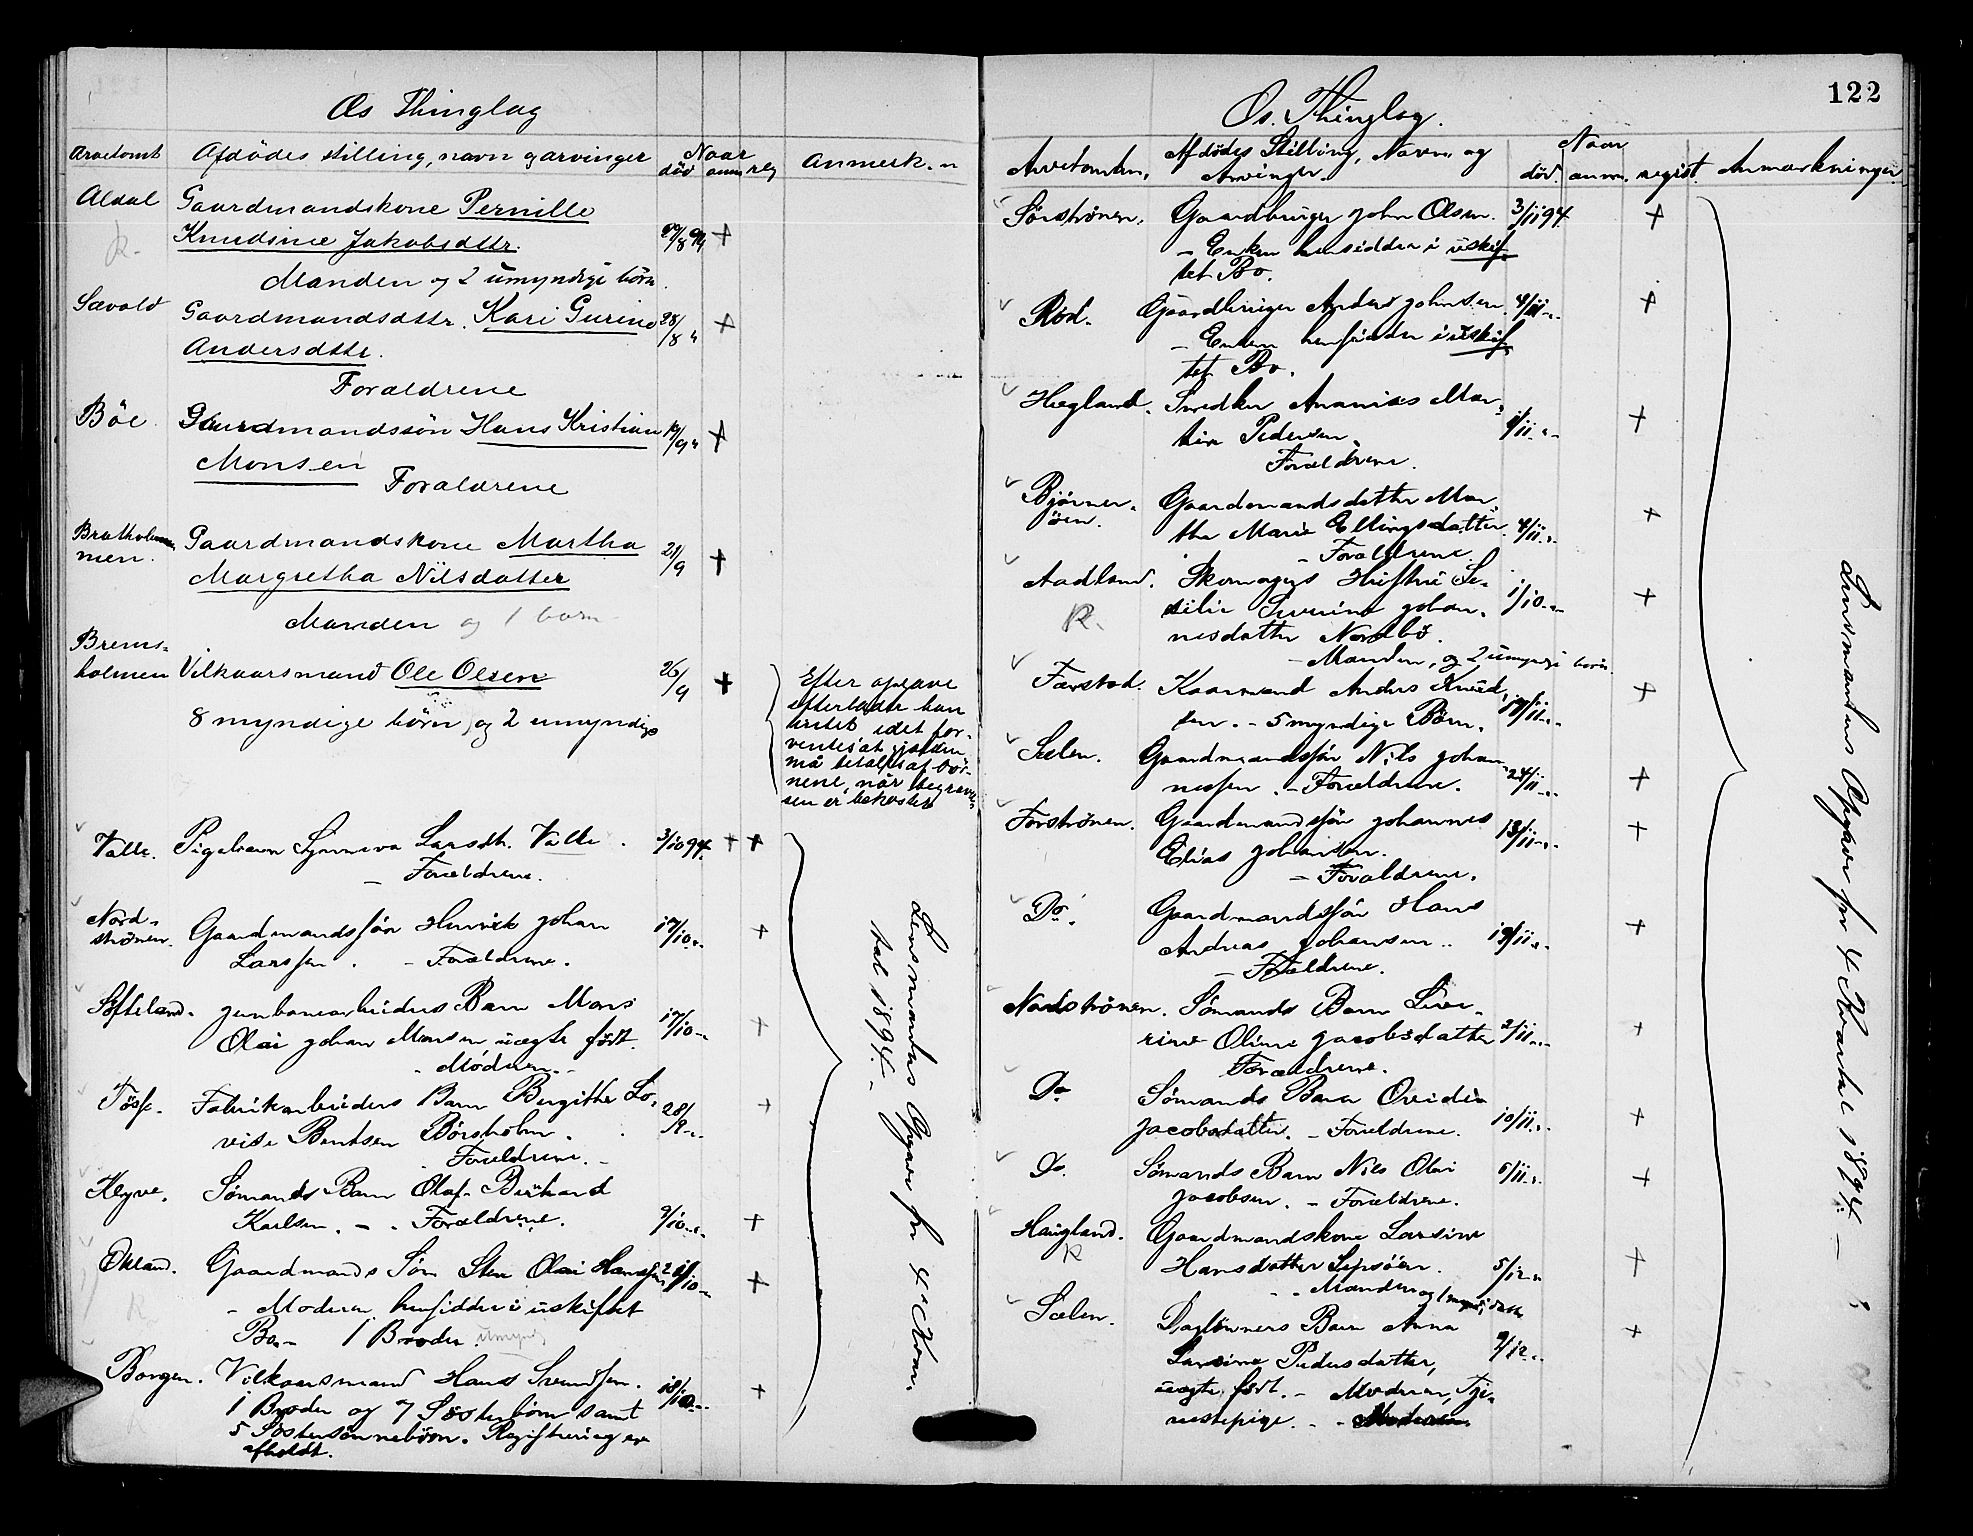 Os Thinglag
Arvetomt Afdödes stilling, navn og arvinger Naar död anm reg Anmerk.n
Aldal Gaardmandskone Pernille
R. Knudsine Jakobsdttr. 27/8 94 +
Manden og 2 umyndige börn.
Sævold Gaardmandsdttr. Kari Gurine 28/8 " +
Andersdttr.
Forældrene
Böe. Gaardmandssön Hans Kristian 19/9 " +
Monsen
Forældrene
Bratholmen
men. Gaardmandskone Martha 21/9 +
Margretha Nilsdatter
Manden og 1 barn
Brems-
holmen Vilkaarsmand Ole Olsen 26/9 +
8 myndige börn, og 2 umyndige
Efter opgave
efterlader han
intet idet for-
ventes at gjælden
må betales af bör-
nene, når begravel
sen er bekostet
Valle. Pigebarn Synneva Larsdtr. Valle. 3/10 94. + +
– Forældrene.
Nord-
strönen. Gaardmandssön Henrik Johan 17/10 „ +
Larssen. – Forældrene.
Søfteland. Jernbanearbeiders Barn Mons
Olai Johan Monsen uægte født. 17/10 „ +
- Moderen. -
Tösse. Fabrikarbeiders Barn Birgithe Lo-
vise Bentsen Börsholm. 28/9 „ +
Forældrene. –
Klyve. Sømands Barn Olaf Berhard
Karlsen. – Forældrene. 9/10 „ +
Økland. Gaardmands Søn Sten Olai Hanssen 21/10 „ +
R. – Moderen hensidder i uskiftet
Bo. – 1 Broder umynd.
Borgen. Vilkaarsmand Hans Svendsen. 18/10 „ +
1 Broder og 7 Søsterbörn samt
5 Søstersönnebörn. Registrering er
afholdt.
Lensmandens Opgaver for 4de Kvar-
tal 1894. –
122
Os. Thinglag.
Arvetomten. Afdödes Stilling, Navn og Arvinger. Naar död. anm. regist. Anmærkninger
Sörströnen. Gaardbruger John Olsen. 3/11 94. +
– Enken hensidder i uskif-
tet Bo.
Röd. Gaardbruger Anders Johnsen. 4/11 „ +
– Enken hensidder i uskif-
tet Bo.
Hegland. Snedker Ananias Mar-
tin Pedersen. 1/11 „ +
Forældrene.
Bjørner-
öen. Gaardmandsdatter Mar-
tha Marie Ellingsdatter. 4/11 „ +
– Forældrene.
Aadland. Skomagers Hustru Se-
R. silie Severine Johan- 1/10 „ +
nesdatter Nordbö.
– Manden, og 2 umyndige börn
Færstad. Kaarmand Anders Knud-
sen. – 5 myndige Börn. 17/11 „ +
Sælen. Gaardmandssön Nils Johan-
nessen. – Forældrene. 24/11 „ +
Forströnen. Gaardmandssön Johannes
Elias Johansen. 13/11 „ +
– Forældrene.
Do. Gaardmandssön Hans
Andreas Johansen. 19/11 „ +
– Forældrene.
Nordströnen. Sömands Barn Seve-
rine Oline Jacobsdatter 2/11 „ +
Forældrene.
Do Sömands Barn Ovidia
Jacobsdatter. – Forældrene. 10/11 „ +
Do. Sömands Barn Nils Olai 6/11 „ +
Jacobsen. – Forældrene.
Haugland. Gaardmandskone Larsine
R Hansdatter Lepsöen. 5/12 „ +
– Manden og 1 mynd. datter
Sælen. Daglönners Barn Anna
Larsine Pedersdatter, 9/12 „ +
uægte född. – Moderen, Tje-
nestepige. –
Lensmandens Opgaver for 4 Kvartal 1894. –